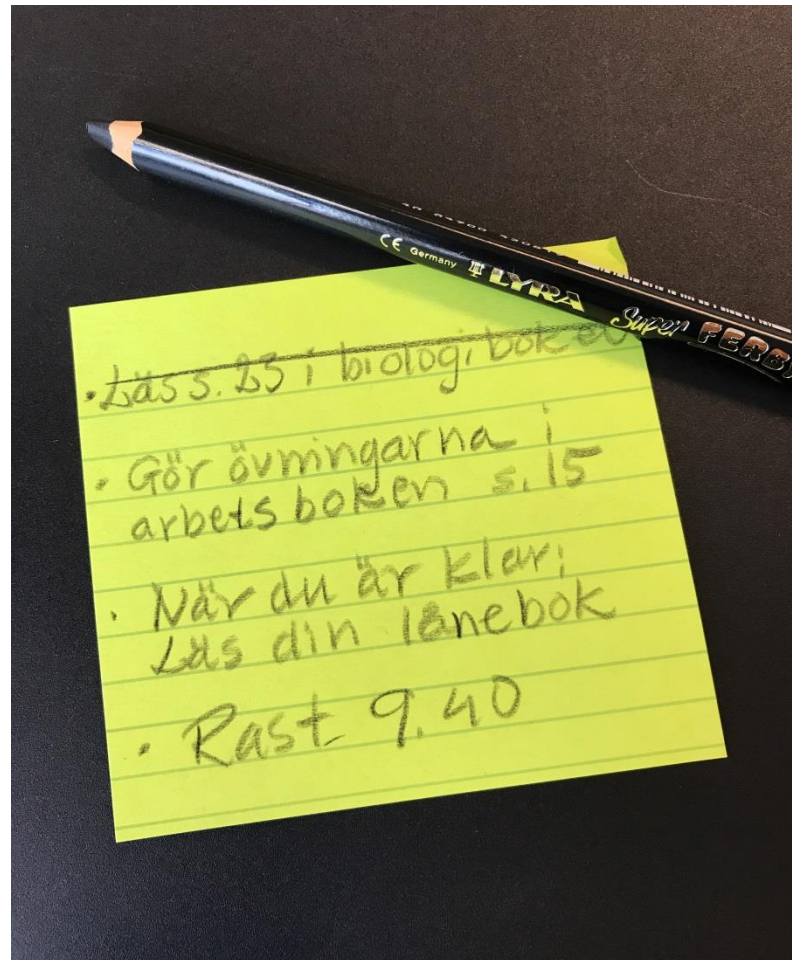 CE Germany LYRA Super FERBY
· Läs s. 23 i biologiboken
· Gör övningarna i
arbetsboken s. 15
· När du är klar:
Läs din lånebok
· Rast 9.40